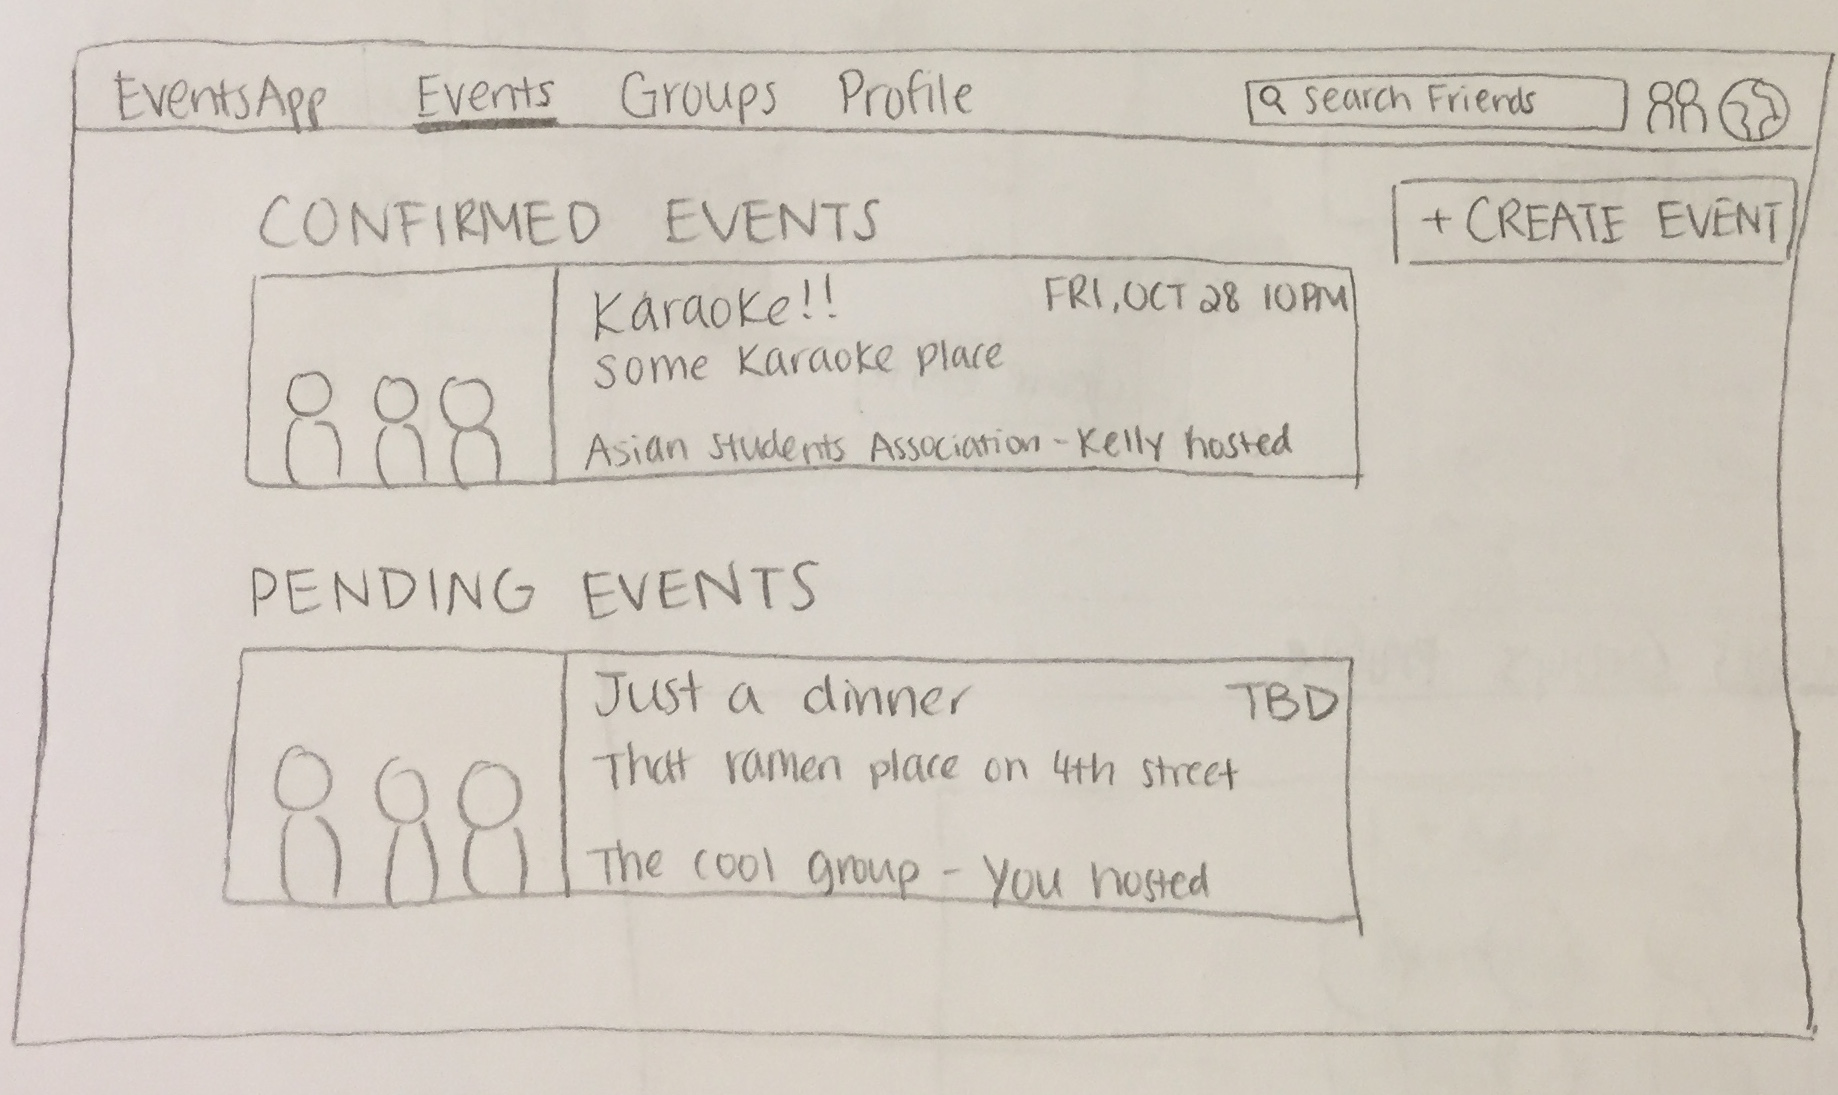 EventsApp Events Groups Profile Search Friends
+ CREATE EVENT
CONFIRMED EVENTS
Karaoke!! FRI, OCT 28 10PM
some Karaoke place
Asian Students Association - Kelly hosted
PENDING EVENTS
Just a dinner TBD
That ramen place on 4th street
The cool group - You hosted